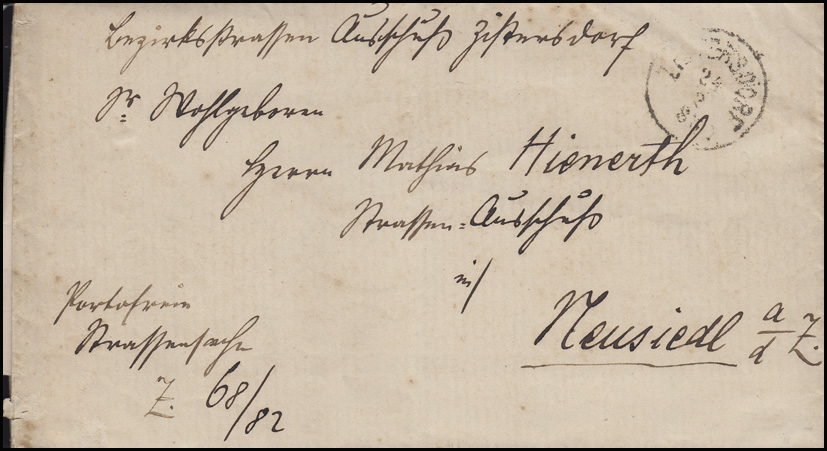 Bezirksstrassen Ausschuß Zistersdorf
ZISTERSDORF
24
Sr Wohlgeboren
Herrn Mathias Hienerth
Strassen-Ausschuß
in/
Portofreie
Strassensache
Neusiedl a/d Z.
Z. 68/82